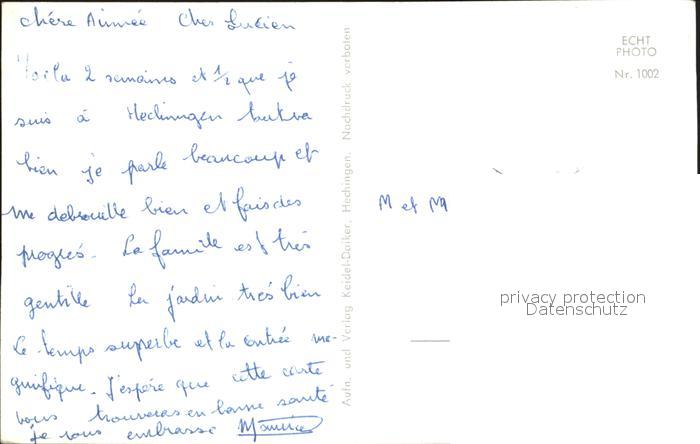 Chére Aimée Cher Lucien
Voila 2 semaines et 1/2 que je
suis à Hechingen tout va
bien je parle beaucoup et
me debrouille bien et fais des
progrés. La famille est très
gentille Le jardin trés bien
Le temps superbe et la contrée ma-
gnifique. J'espére que cette carte
vous trouveras en bonne santé
je vous embrasse Maurice
Aufn. und Verlag Keidel-Daiker, Hechingen. Nachdruck verboten
ECHT
PHOTO
Nr. 1002
M et
privacy protection
Datenschutz